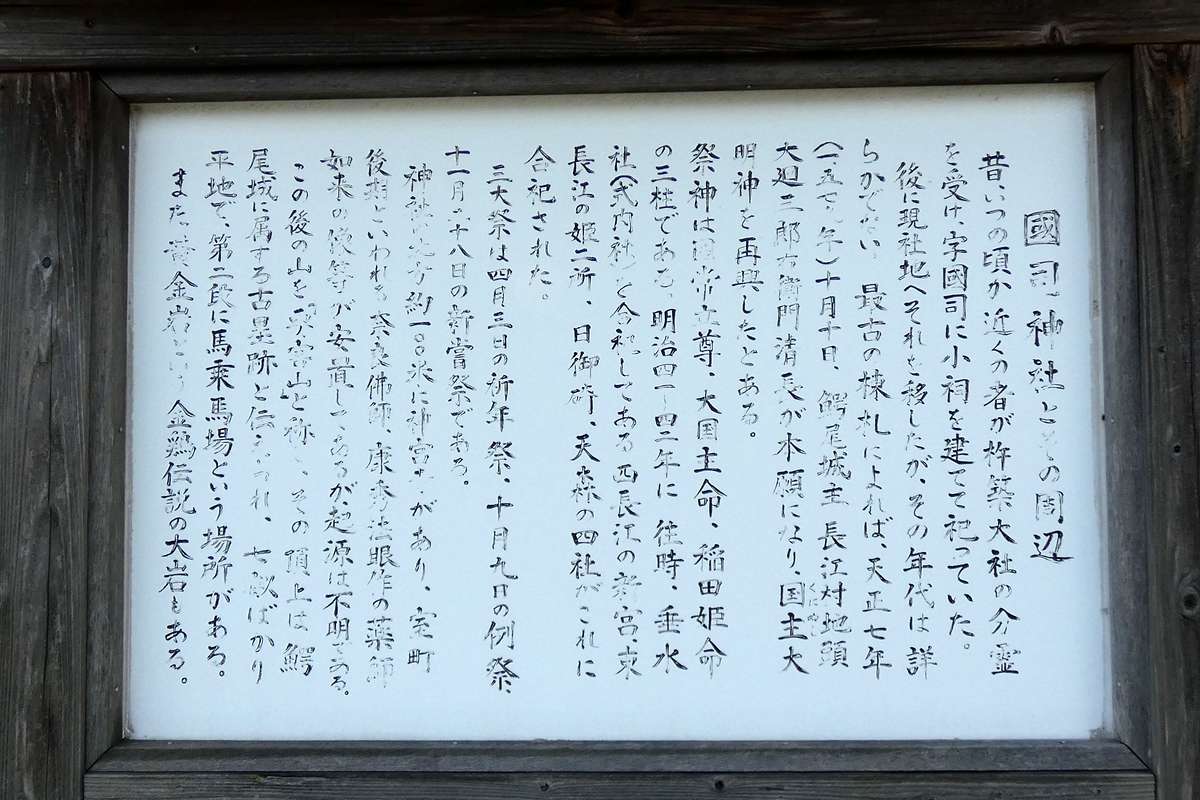 國司神社とその周辺
昔、いつの頃か近くの者が杵築大社の分霊
を受け、字國司に小祠を建てて祀っていた。
後に現社地へそれを移したが、その年代は詳
らかでない。最古の棟札によれば、天正七年
(一五七九年)十月十日、鰐尾城主長江村地頭
大廻三郎右衛門清長が本願になり、国主大
明神を再興したとある。
祭神は国常立尊、大国主命、稲田姫命
の三柱である。明治四一~四二年に往時、垂水
社(式内社)と合祀してある西長江の新宮、東
長江の姫二所、日御碕、天森の四社がこれに
合祀された。
三大祭は四月三日の祈年祭、十月九日の例祭、
十一月二十八日の新嘗祭である。
神社の東方約一〇〇米に神宮寺があり、室町
後期といわれる奈良佛師、康秀法眼作の薬師
如来の像等が安置してあるが、起源は不明である。
この後の山を「要害山」と称し、その頂上は鰐
尾城に属する古塁跡と伝えられ、七畝ばかり
平地で、第二段に馬乗馬場という場所がある。
また、黄金岩という金鶏伝説の大岩もある。